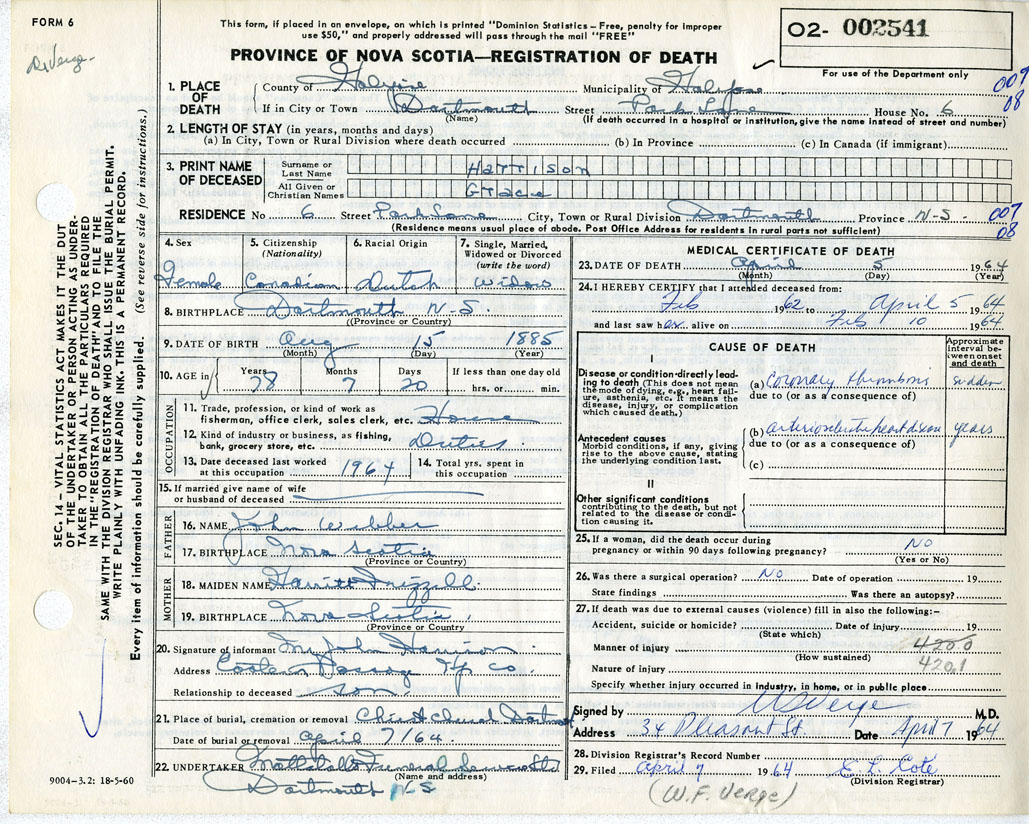 FORM 6
DeVerge-
This form, if placed in an envelope, on which is printed "Dominion Statistics – Free, penalty for improper
use $50," and properly addressed will pass through the mail "FREE"
PROVINCE OF NOVA SCOTIA—REGISTRATION OF DEATH
O2- 002541
For use of the Department only
1. PLACE OF DEATH
County of Halifax Municipality of Halifax 007
If in City or Town Dartmouth Street Park Lane House No. 6 08
(Name) (If death occurred in a hospital or institution, give the name instead of street and number)
2. LENGTH OF STAY (in years, months and days)
(a) In City, Town or Rural Division where death occurred (b) In Province (c) In Canada (if immigrant)
3. PRINT NAME OF DECEASED
Surname or Last Name Harrison
All Given or Christian Names Grace
RESIDENCE No 6 Street Park Lane City, Town or Rural Division Dartmouth Province N-S. 007
(Residence means usual place of abode. Post Office Address for residents in rural parts not sufficient) 08
4. Sex Female
5. Citizenship (Nationality) Canadian
6. Racial Origin Dutch
7. Single, Married, Widowed or Divorced (write the word) Widow
8. BIRTHPLACE Dartmouth N-S.
(Province or Country)
9. DATE OF BIRTH Aug 15 1885
(Month) (Day) (Year)
10. AGE in Years 78 Months 7 Days 20 If less than one day old
hrs. or min.
OCCUPATION
11. Trade, profession, or kind of work as
fisherman, office clerk, sales clerk, etc. House
12. Kind of industry or business, as fishing,
bank, grocery store, etc. Duties
13. Date deceased last worked at this occupation 1964
14. Total yrs. spent in this occupation
15. If married give name of wife
or husband of deceased
FATHER
16. NAME John Webber
17. BIRTHPLACE Nova Scotia
(Province or Country)
MOTHER
18. MAIDEN NAME Harriet Frizzell
19. BIRTHPLACE Nova Scotia
(Province or Country
20. Signature of informant Mr. John Harrison
Address Eastern Passage Hfx Co.
Relationship to deceased son
21. Place of burial, cremation or removal Christ Church Dartmouth
Date of burial or removal April 7/64
22. UNDERTAKER Mattatall's Funeral
(Name and address)
Dartmouth N S
MEDICAL CERTIFICATE OF DEATH
23. DATE OF DEATH April 5 1964
(Month) (Day) (Year)
24. I HEREBY CERTIFY that I attended deceased from:
Feb 1962 to April 5 1964
and last saw her alive on Feb 10 1964
CAUSE OF DEATH
Approximate interval between onset and death
I
Disease or condition-directly leading to death (This does not mean the mode of dying, e.g., heart failure, asthenia, etc. It means the disease, injury, or complication which caused death.)
(a) Coronary thrombosis sudden
due to (or as a consequence of)
Antecedent causes
Morbid conditions, if any, giving rise to the above cause, stating the underlying condition last.
(b) arteriosclerotic heart disease years
due to (or as a consequence of)
(c)
II
Other significant conditions
contributing to the death, but not related to the disease or condition causing it.
25. If a woman, did the death occur during
pregnancy or within 90 days following pregnancy? No
(Yes or No)
26. Was there a surgical operation? No Date of operation 19
State findings Was there an autopsy?
27. If death was due to external causes (violence) fill in also the following:–
Accident, suicide or homicide? Date of injury 19
(State which)
Manner of injury 4200
(How sustained)
4201
Nature of injury
Specify whether injury occurred in industry, in home, or in public place
Signed by W F Verge M.D.
Address 34 Pleasant St. Date April 7 1964
28. Division Registrar's Record Number
29. Filed April 7 1964 E L Cote
(Division Registrar)
(W.F. Verge)
SEC. 14 – VITAL STATISTICS ACT MAKES IT THE DUT
OF THE UNDERTAKER OR PERSON ACTING AS UNDER-
TAKER TO OBTAIN ALL THE PARTICULARS REQUIRED
IN THE "REGISTRATION OF DEATH" AND TO FILE THE
SAME WITH THE DIVISION REGISTRAR WHO SHALL ISSUE THE BURIAL PERMIT.
WRITE PLAINLY WITH UNFADING INK. THIS IS A PERMANENT RECORD.
Every item of information should be carefully supplied. (See reverse side for instructions.)
9004-3.2: 18-5-60